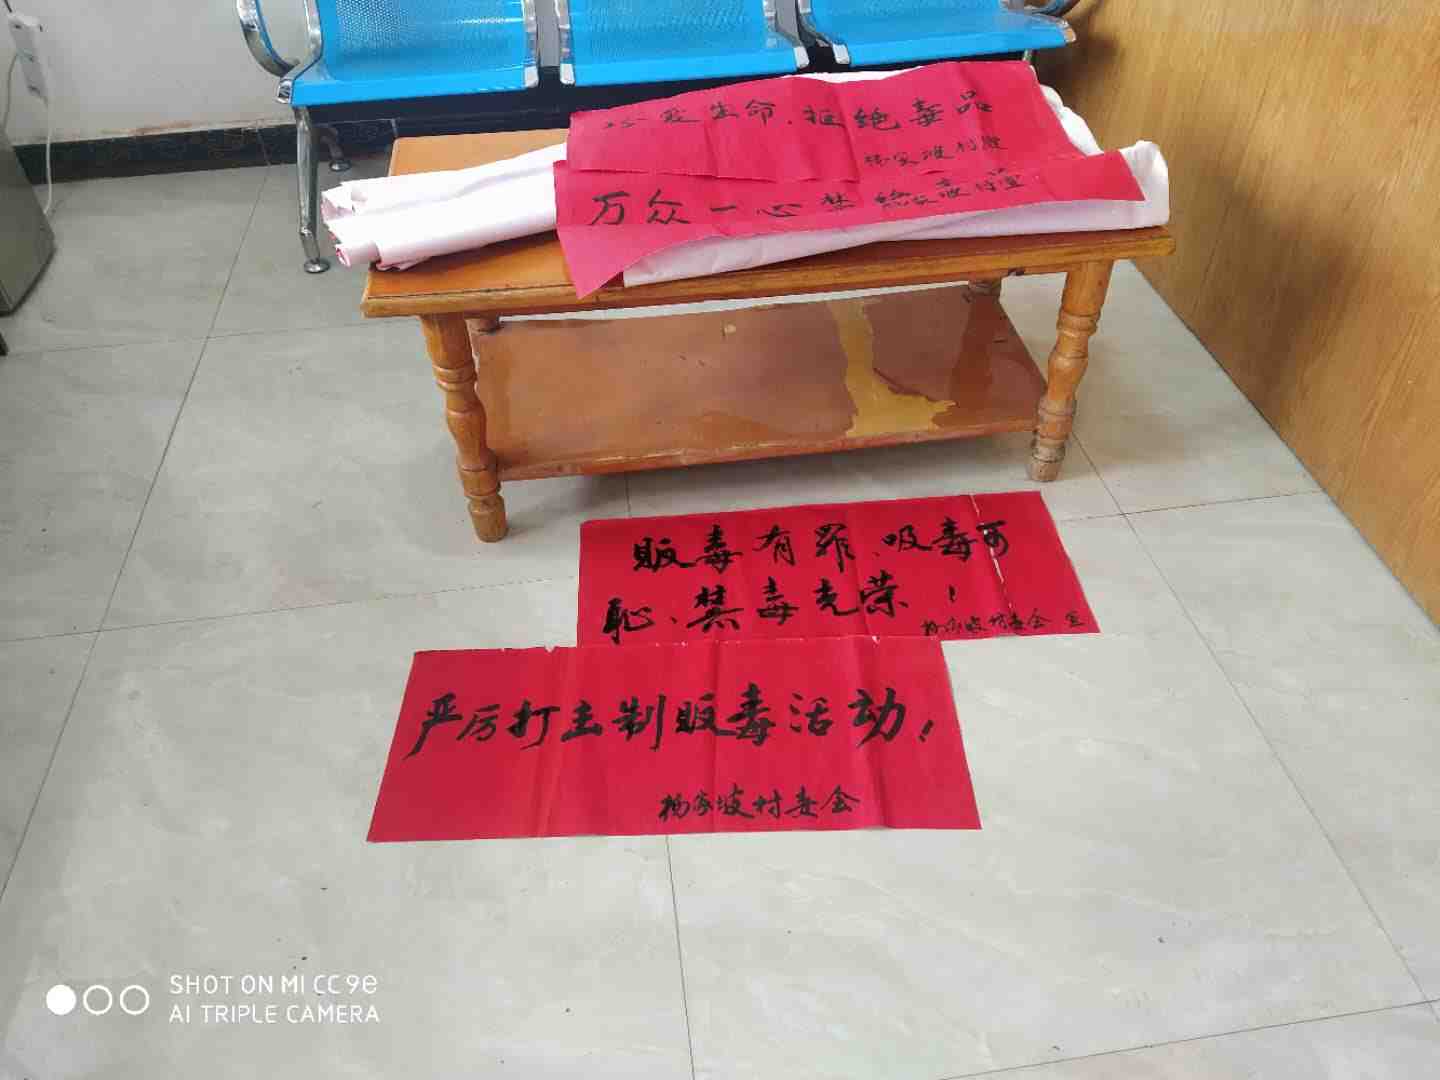 爱生命.拒绝毒品
杨家坡村宣
万众一心禁绝毒
贩毒有罪、吸毒可
耻、禁毒光荣!
杨家坡村委会 宣
严厉打击制贩毒活动!
杨家坡村委会
SHOT ON MI CC9e
AI TRIPLE CAMERA